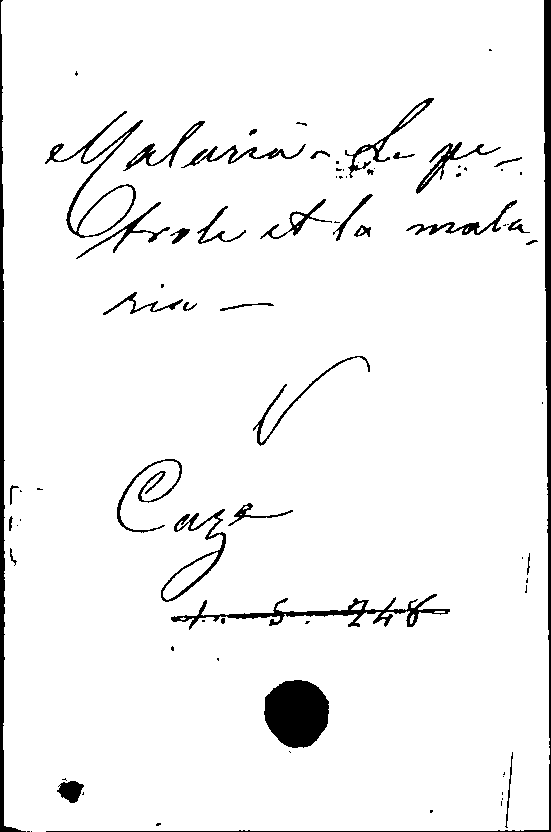 Malaria - Le pe-
trole et la mala-
ria -
V
Caze
1. 5. 248